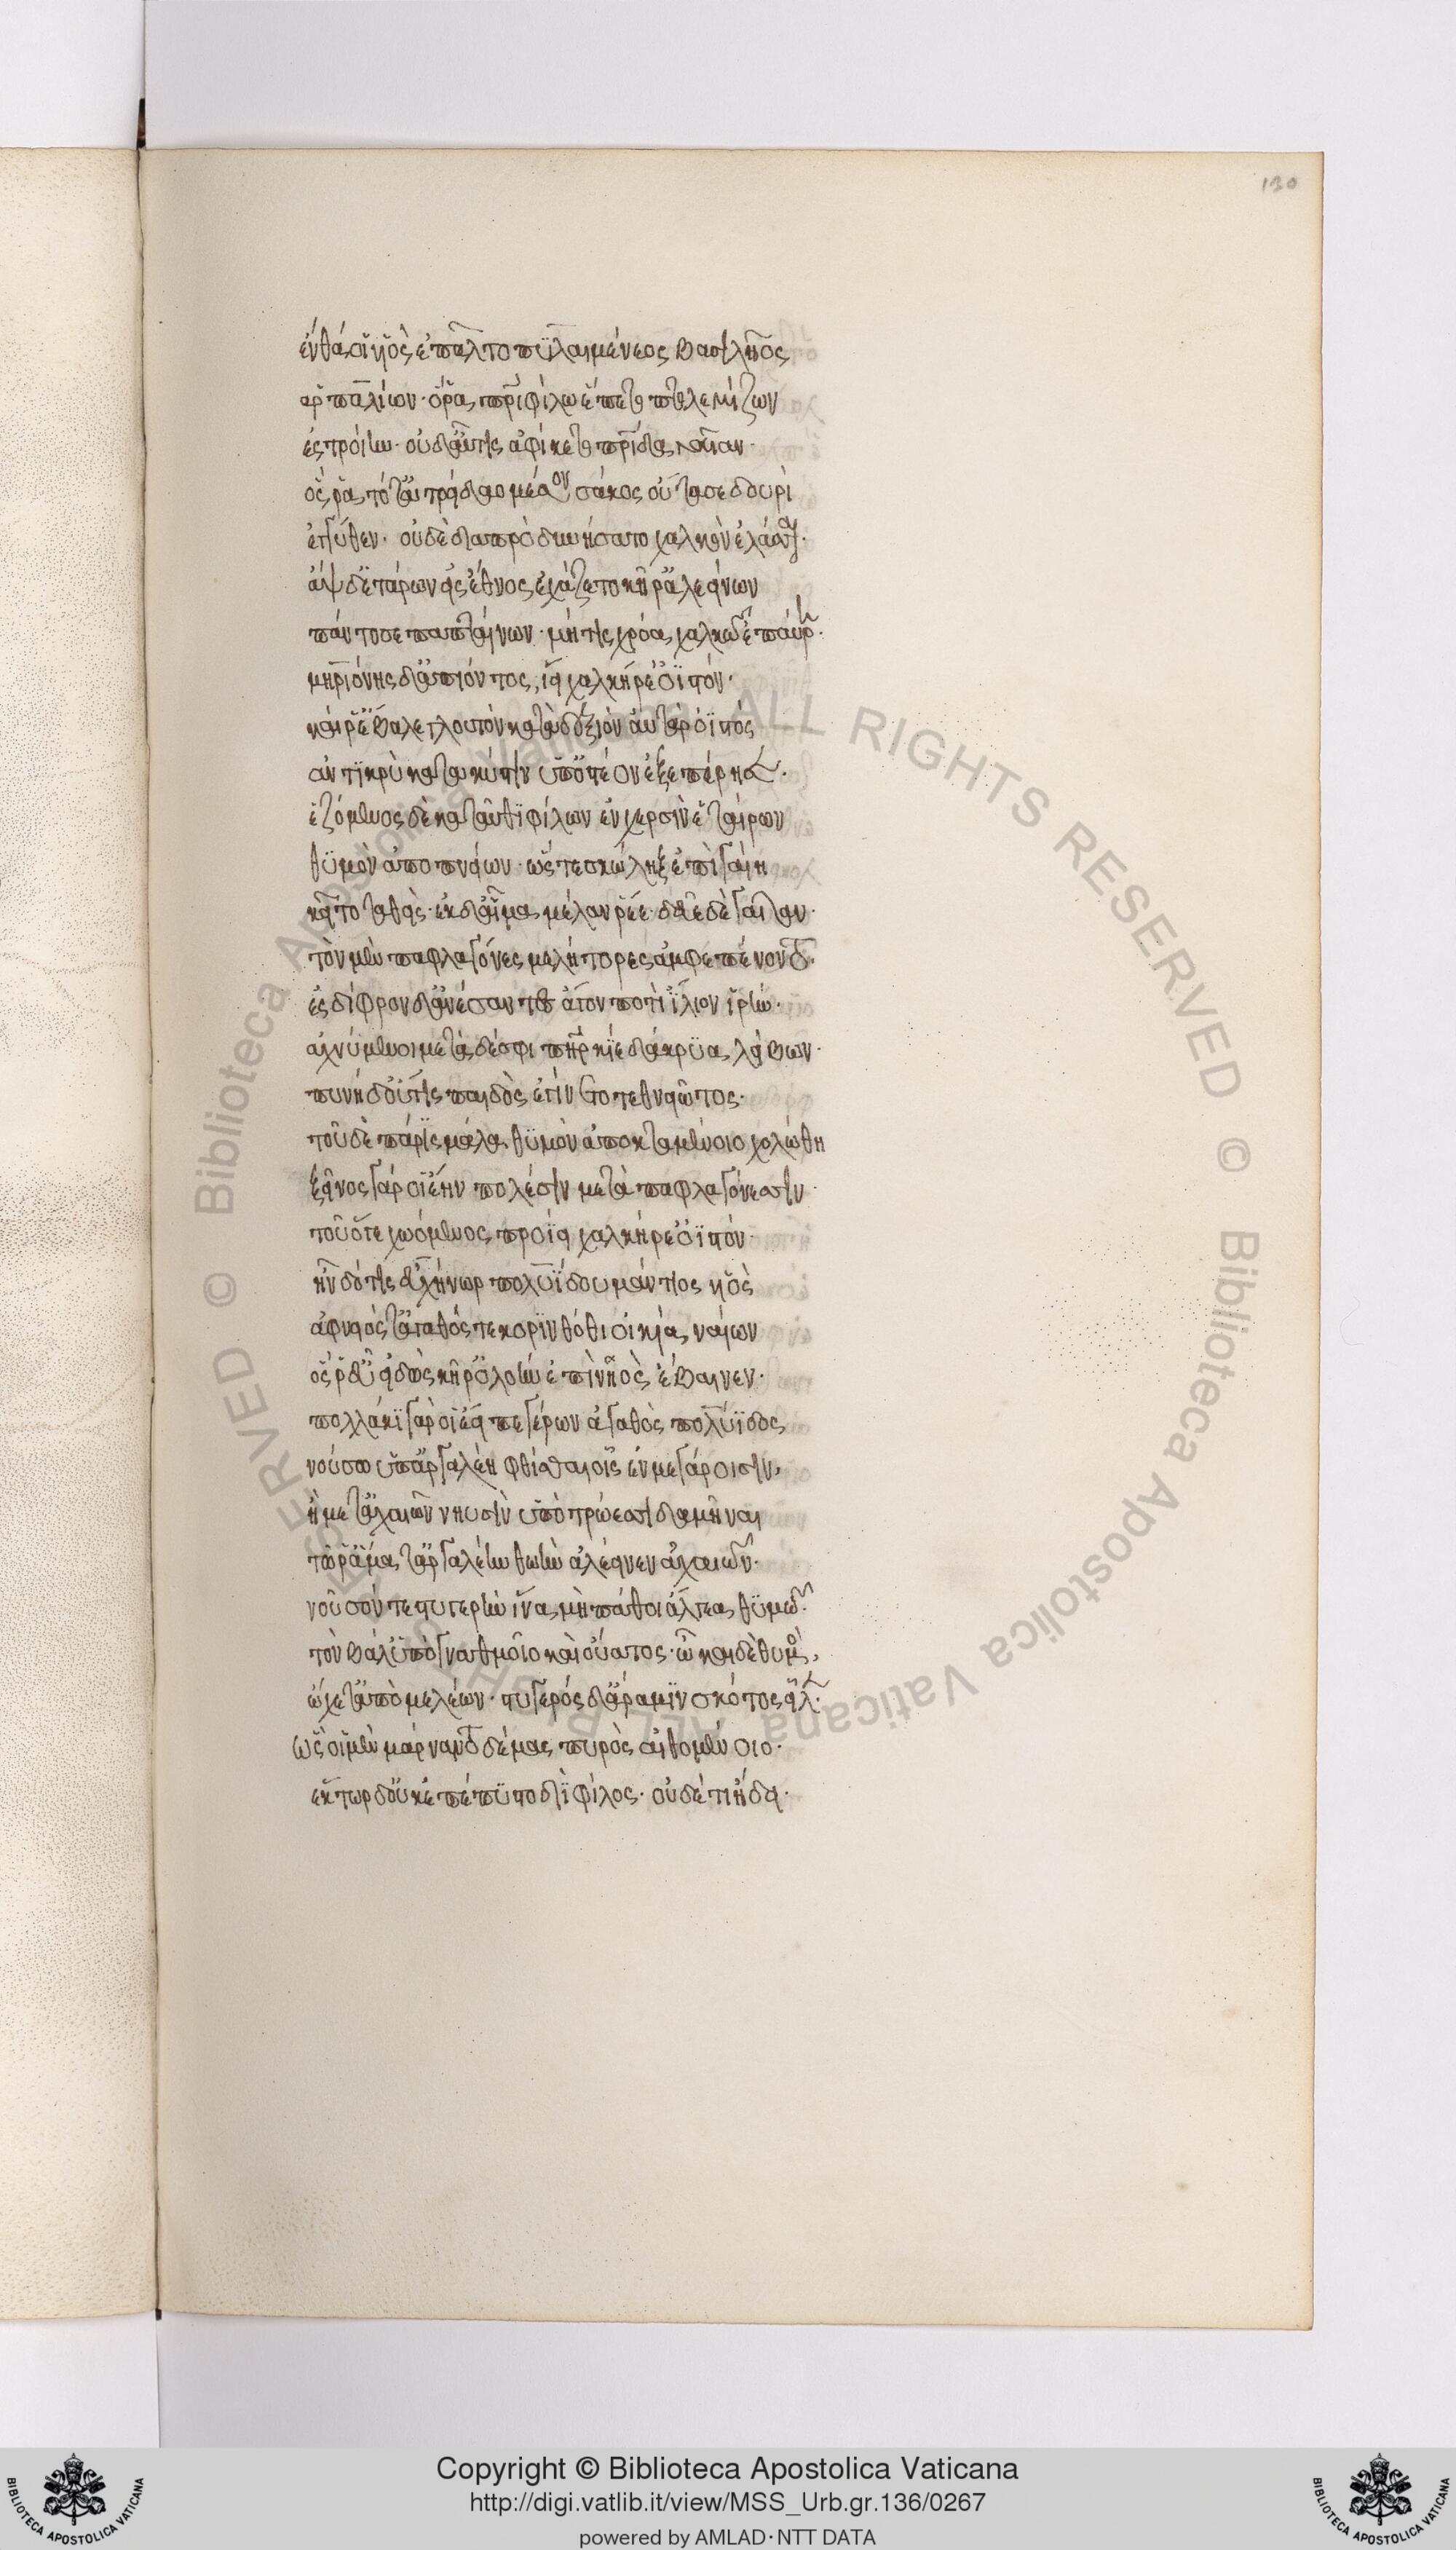 130
ἔνθά οἱ υἱὸς ἐπᾶλτο πυλαιμένεος βασιλῆος
ἁρπαλίων· ὅ ῥα πατρὶ φίλω ἕπετο πτολεμίζων
ἐς τροίην· οὐδ' αὖτις ἀφίκετο πατρίδα γαῖαν·
ὅς ῥα τότ' ἀτρείδαο μέσον σάκος οὔτασε δουρὶ
ἐγγύθεν· οὐδὲ διαπρὸ δυνήσατο χαλκὸν ἐλάσσαι·
ἂψ δ' ἑτάρων εἰς ἔθνος ἐχάζετο κῆρ' ἀλεείνων
πάντοσε παπταίνων· μή τις χρόα χαλκῶ ἐπαύρη·
μηριόνης δ' ἀπιόντος, ἵει χαλκήρε' ὀϊστόν·
καί ῥ' ἔβαλε γλουτὸν κατὰ δεξιὸν αὐτὰρ ὀϊστὸς
ἀντικρὺ κατὰ κύστιν ὑπ' ὀστέον ἐξεπέρησε·
ἑζόμενος δὲ κατ' αὖθι φίλων ἐν χερσὶν ἑταίρων
θυμὸν ἀποπνείων· ὥς τε σκώληξ ἐπὶ γαίη
κεῖτο ταθείς· ἐκ δ' αἷμα μέλαν ῥέε· δεῦε δὲ γαῖαν·
τὸν μὲν παφλαγόνες μεγαλήτορες ἀμφεπένοντο·
ἐς δίφρον δ' ἀνέσαντες ἄγον ποτὶ ἴλιον ἱρήν·
ἀχνύμενοι μετὰ δέ σφι πατὴρ κίε δάκρυα λείβων·
ποινὴ δ' οὔτις παιδὸς ἐγίνετο τεθνειῶτος·
τοῦ δὲ πάρις μάλα θυμὸν ἀποκταμένοιο χολώθη
ξεῖνος γάρ οἱ ἔην πολέσιν μετὰ παφλαγόνεσσιν·
τοῦ ὅτε χωόμενος προΐει χαλκήρε' ὀϊστόν·
ἦν δέ τις εὐχήνωρ πολυΐδου μάντιος υἱὸς
ἀφνειός τ' ἀγαθός τε κορινθόθι οἰκία ναίων
ὅς ῥ' εὖ εἰδὼς κῆρ' ὀλοὴν ἐπὶ νηὸς ἔβαινεν·
πολλάκι γάρ οἱ ἔειπε γέρων ἀγαθὸς πολύϊδος
νούσω ὑπ' ἀργαλέη φθίσθαι οἷς ἐν μεγάροισιν,
ἢ μετ' ἀχαιῶν νηυσὶν ὑπὸ τρώεσσι δαμῆναι
τῶ ῥ' ἅμα τ' ἀργαλέην θωὴν ἀλέεινεν ἀχαιῶν·
νοῦσόν τε στυγερὴν ἵνα μὴ πάθοι ἄλγεα θυμῶ·
τὸν βάλ' ὑπὸ γναθμοῖο καὶ οὔατος· ὦκα δὲ θυμὸς,
ὤχετ' ἀπὸ μελέων· στυγερός δ' ἄρα μιν σκότος εἷλε·
ὣς οἱ μὲν μάρναντο δέμας πυρὸς αἰθομένοιο·
ἕκτωρ δ' οὐκ ἐπέπυστο διῒ φίλος· οὐδέ τι ᾔδει·
Copyright © Biblioteca Apostolica Vaticana
http://digi.vatlib.it/view/MSS_Urb.gr.136/0267
powered by AMLAD·NTT DATA